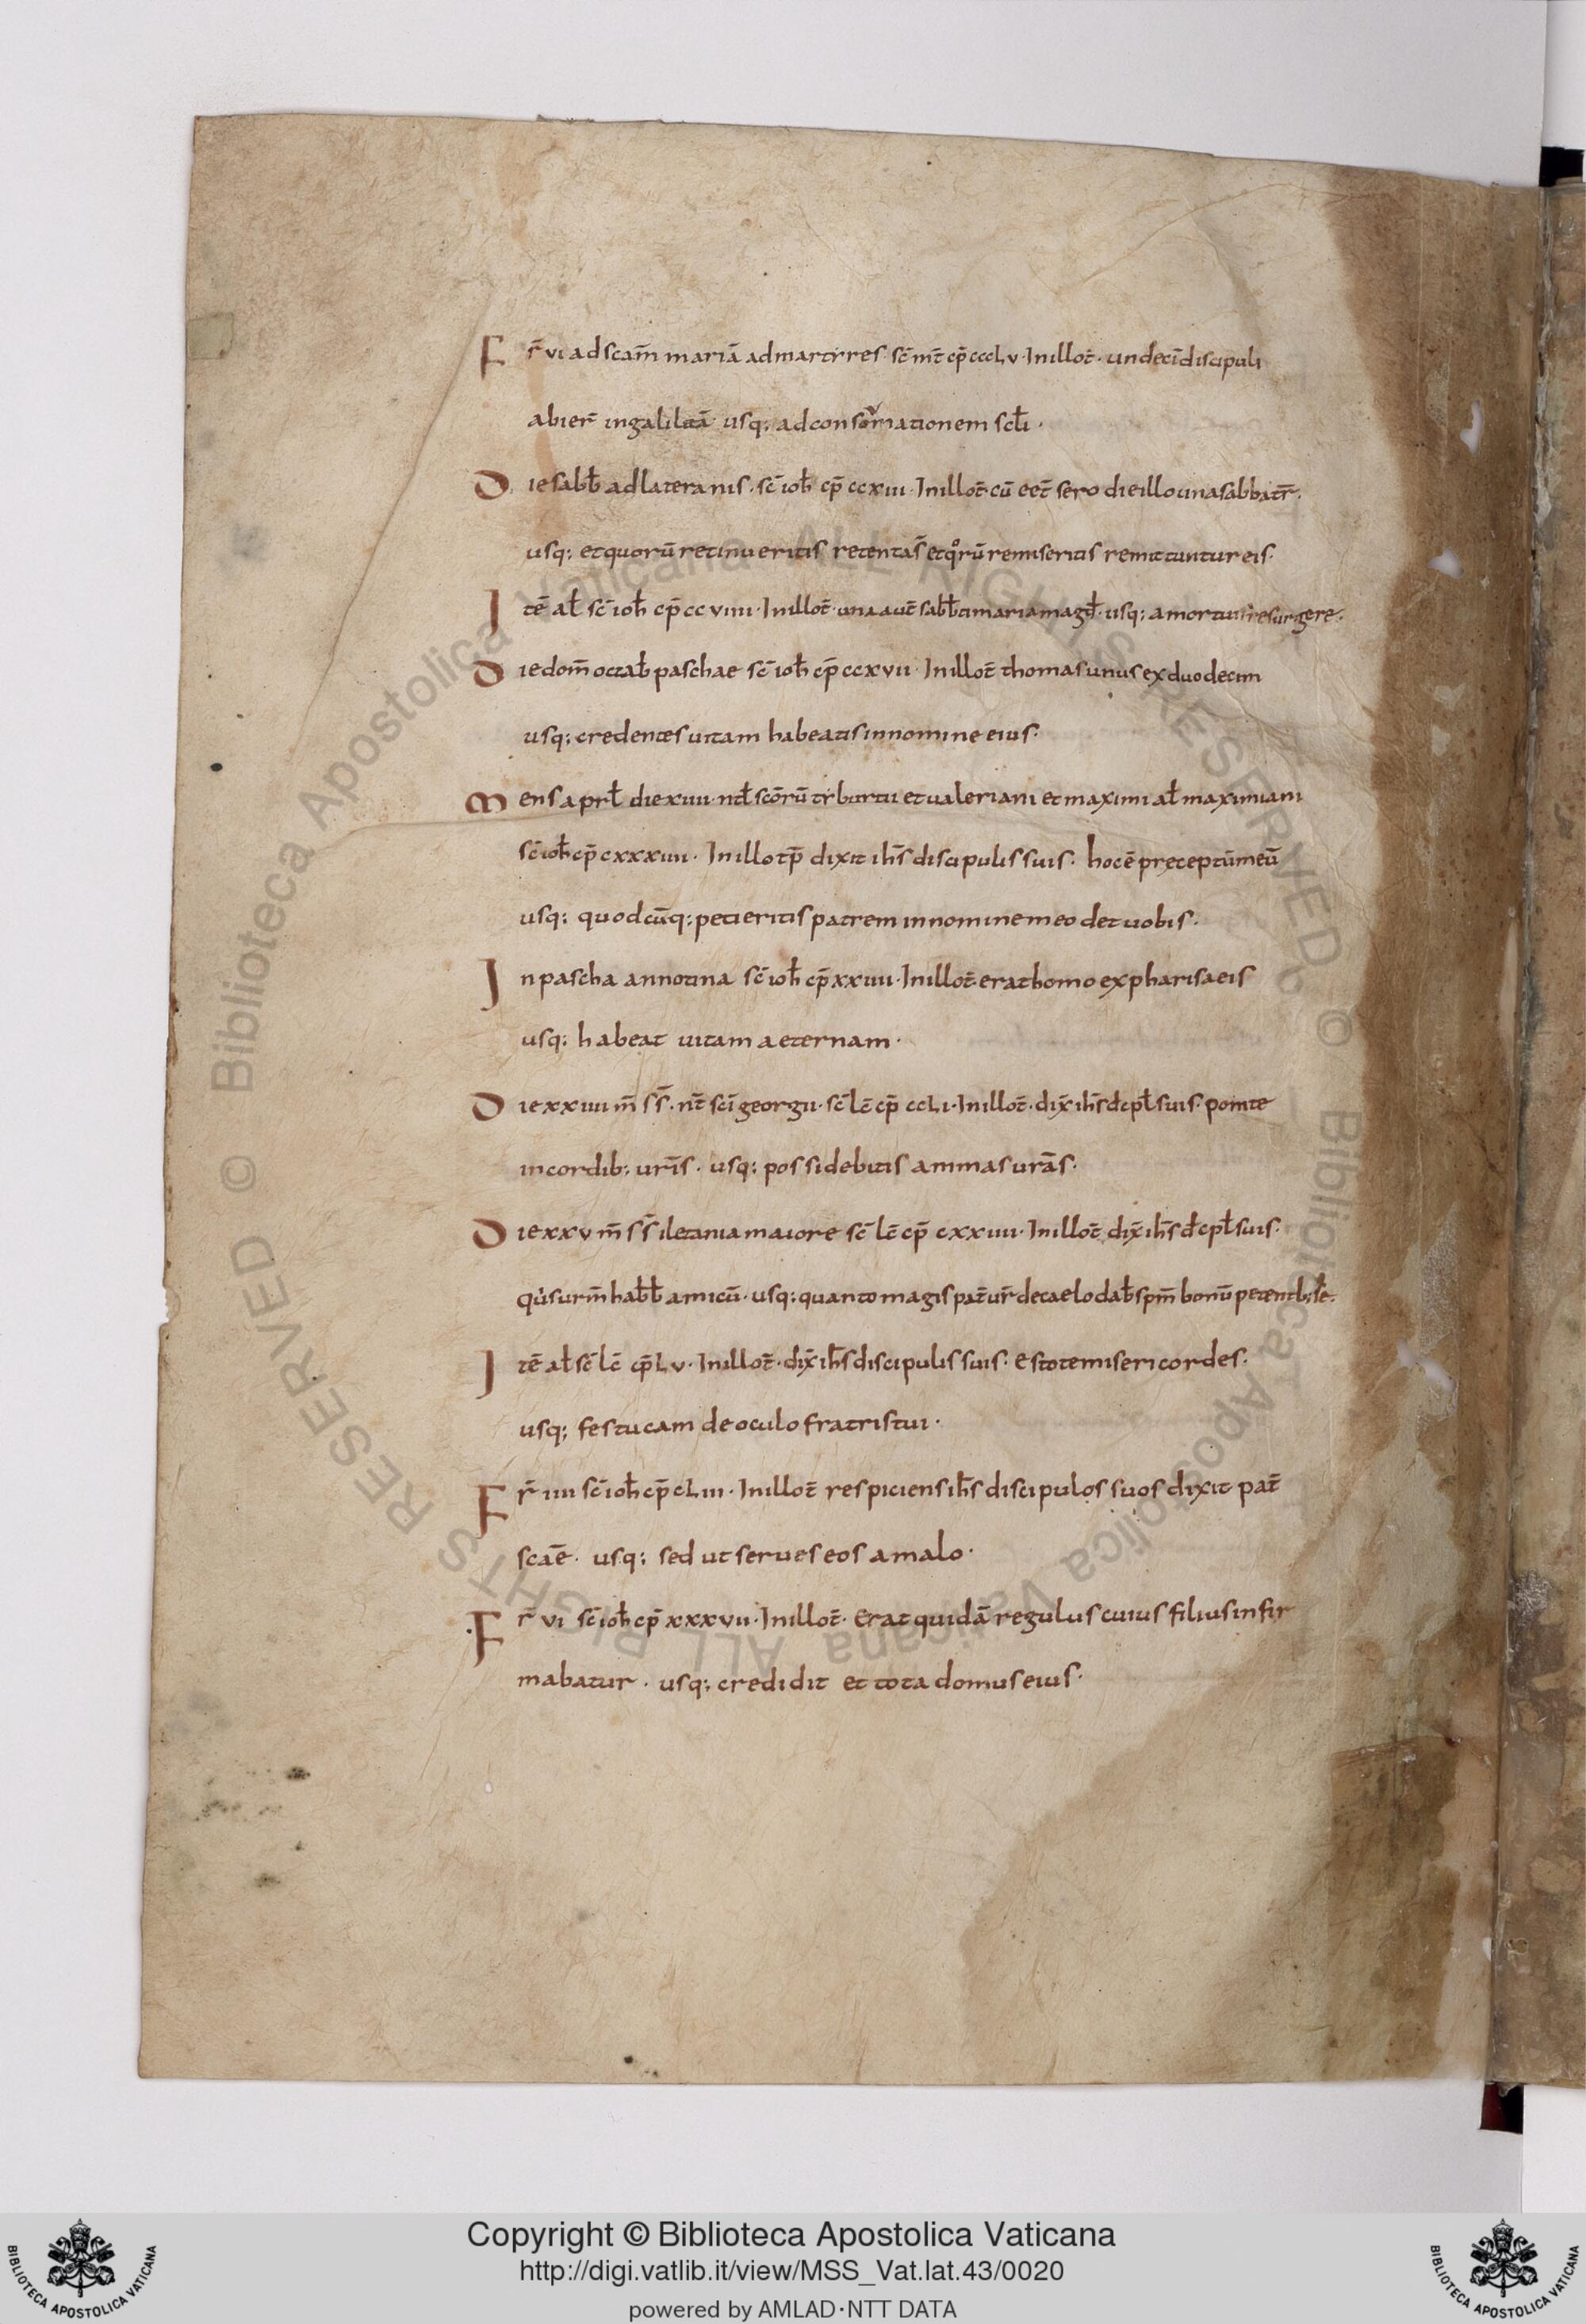 Fr̄ vi ad scam̄ mariā ad martyres. sc̄ mt̄ cp̄ cccLv. In illot̄. undecī discipuli
abier̄ in galileā usq; ad consūmationem scl̄i.
Die sabb̄ ad lateranis. sc̄ ioh̄ cp̄ ccxiii. In illot̄. cū eet̄ sero die illo una sabbatr̄.
usq; et quorū retinueritis retenta s̄ et qͦrū remiseritis remittuntur eis.
Itē al̄ sc̄ ioh̄ cp̄ ccviiii. In illot̄. una aut̄ sabb̄ti maria magd̄. usq; a mortuis resurgere.
Die dom̄ octab̄ paschae sc̄ ioh̄ cp̄ ccxvii. In illot̄ thomas unus ex duodecim
usq; credentes uitam habeatis in nomine eius.
Mens aprl̄ die xiiii. nt̄ scōrū tyburtii et ualeriani et maximi al̄ maximiani
sc̄ ioh̄ cp̄ cxxxiiii. In illo tp̄ dixit ih̄s discipulis suis. hoc ē preceptū meū
usq; quodcūq; petieritis patrem in nomine meo det uobis.
In pascha annotina sc̄ ioh̄ cp̄ xxiiii. In illot̄. erat homo ex pharisaeis
usq; habeat uitam aeternam.
Die xxiiii m̄ s s̄. nt̄ scī georgii. sc̄ lc̄ cp̄ ccLi. In illot̄. dix̄ ih̄s dcpl̄ suis. ponite
in cordib; uris̄. usq; possidebitis animas urās.
Die xxv m̄ s s̄ i letania maiore sc̄ lc̄ cp̄ cxxiiii. In illot̄ dix̄ ih̄s dcpl̄ suis.
quis urm̄ hab̄b̄ amicū. usq; quanto magis pat̄ ur̄ de caelo dab̄ spm̄ bonū petentib; se.
Itē al̄ sc̄ lc̄ cp̄ Lv. In illot̄. dix̄ ih̄s discipulis suis. Estote misericordes.
usq; festucam de oculo fratris tui.
Fr̄ iiii sc̄ ioh̄ cp̄ cLiii. In illot̄ respiciens ih̄s discipulos suos dixit pat̄
scāe. usq; sed ut serues eos a malo.
Fr̄ vi sc̄ ioh̄ cp̄ xxxvii. In illot̄. Erat quidā regulus cuius filius infir
mabatur. usq; credidit et tota domus eius.
Biblioteca Apostolica Vaticana ALL RIGHTS RESERVED ©
Biblioteca Apostolica Vaticana ALL RIGHTS RESERVED ©
Copyright © Biblioteca Apostolica Vaticana
http://digi.vatlib.it/view/MSS_Vat.lat.43/0020
powered by AMLAD·NTT DATA
BIBLIOTECA APOSTOLICA VATICANA
BIBLIOTECA APOSTOLICA VATICANA